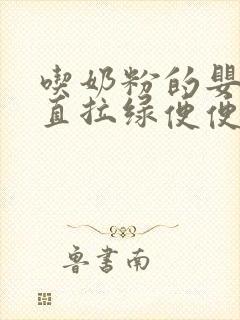 喫奶粉的嬰
直拉绿便便
鲁書南